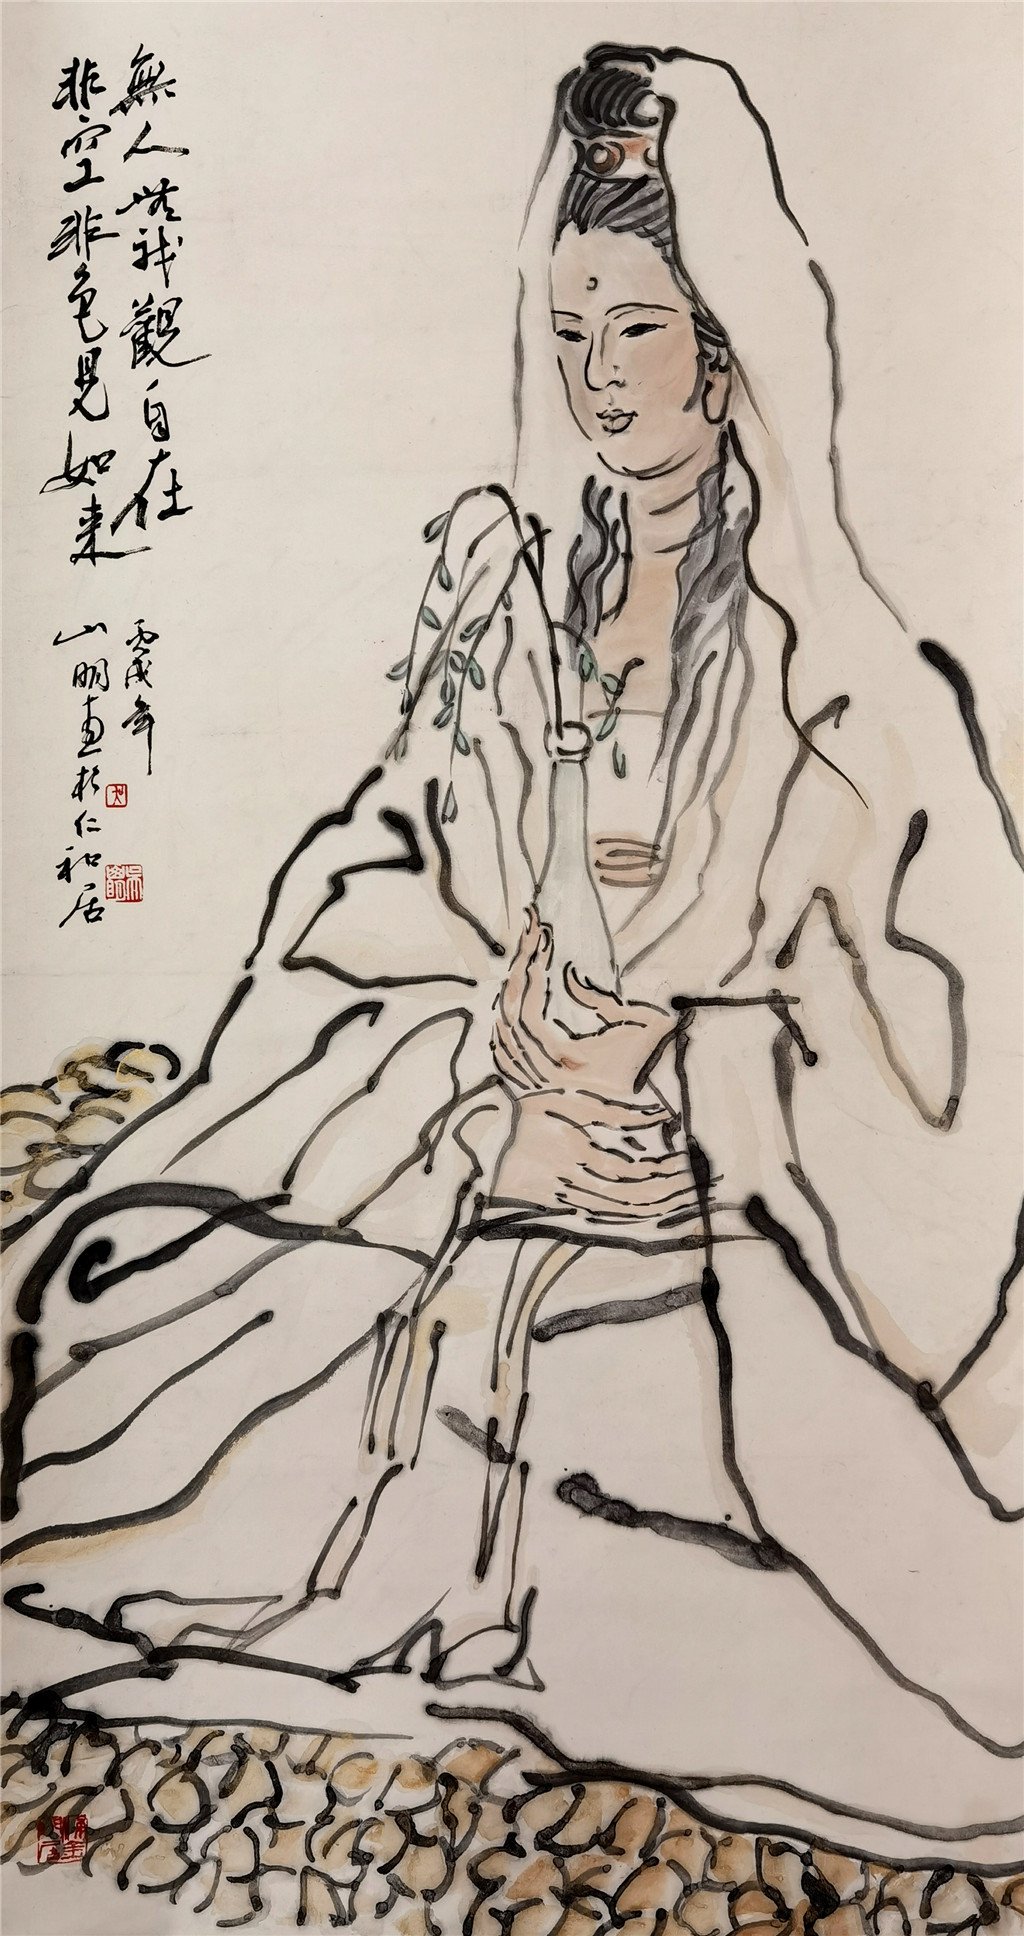 無人無我觀自在
非空非色見如来
丙戌年
山明画於仁和居